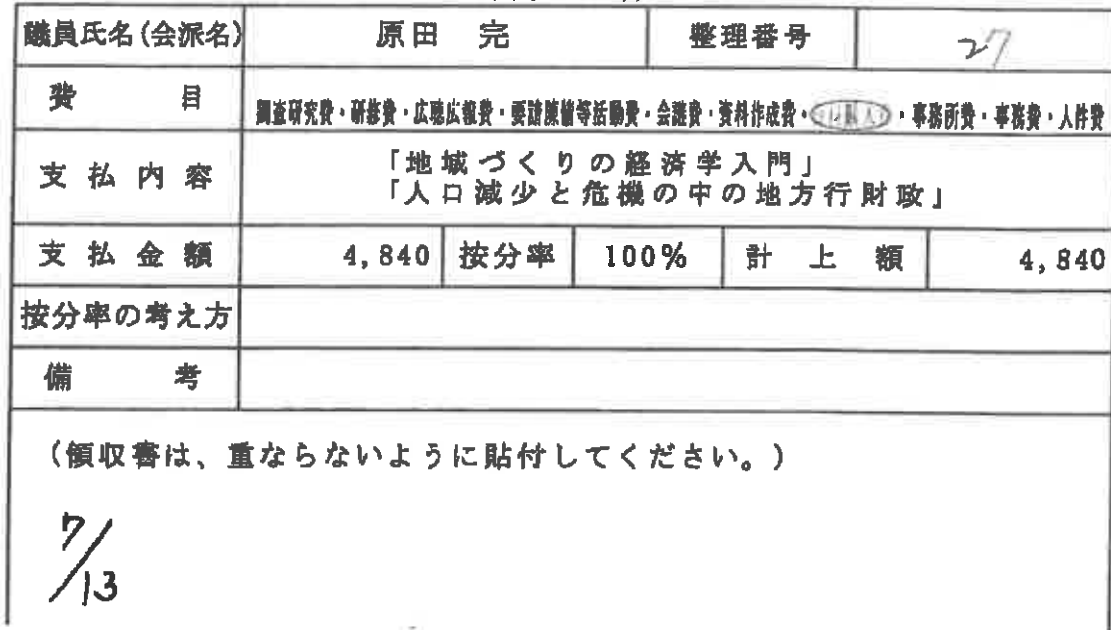 議員氏名(会派名) 原田 完 整理番号 27
費目 調査研究費・研修費・広聴広報費・要請陳情等活動費・会議費・資料作成費・ ・事務所費・事務費・人件費
支払内容 「地域づくりの経済学入門」
「人口減少と危機の中の地方行財政」
支払金額 4,840 按分率 100% 計上額 4,840
按分率の考え方
備考
(領収書は、重ならないように貼付してください。)
7/13